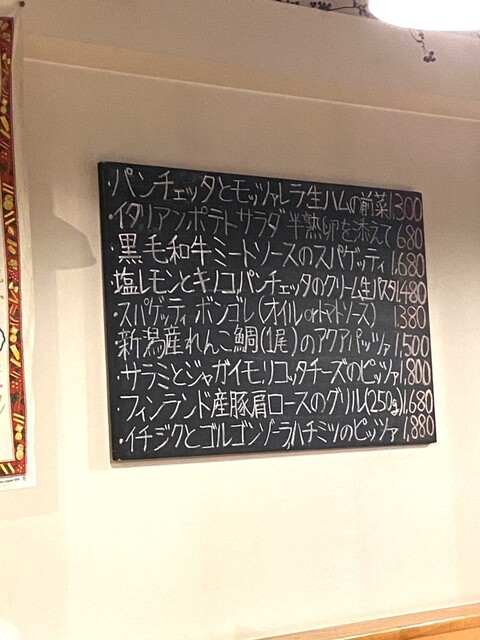 ・パンチェッタとモッツァレラ生ハムの前菜1,300
・イタリアンポテトサラダ 半熟卵を添えて 680
・黒毛和牛ミートソースのスパゲッティ 1,680
・塩レモンとキノコ、パンチェッタのクリーム生パスタ1,480
・スパゲッティ・ボンゴレ(オイルorトマトソース) 1380
・新潟産れんこ鯛(1尾)のアクアパッツァ 1,500
・サラミとジャガイモ、リコッタチーズのピッツァ 1,800
・フィンランド産豚肩ロースのグリル(250g) 1,680
・イチジクとゴルゴンゾーラ、ハチミツのピッツァ 1,880